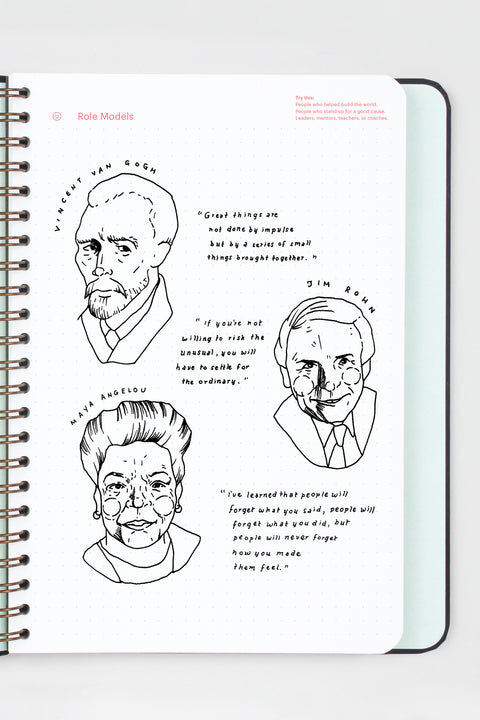 Role Models
Try this:
People who helped build the world.
People who stand up for a good cause.
Leaders, mentors, teachers, or coaches.
VINCENT VAN GOGH
"Great things are
not done by impulse
but by a series of small
things brought together."
JIM ROHN
"if you're not
willing to risk the
unusual, you will
have to settle for
the ordinary."
MAYA ANGELOU
"i've learned that people will
forget what you said, people will
forget what you did, but
people will never forget
how you made
them feel."